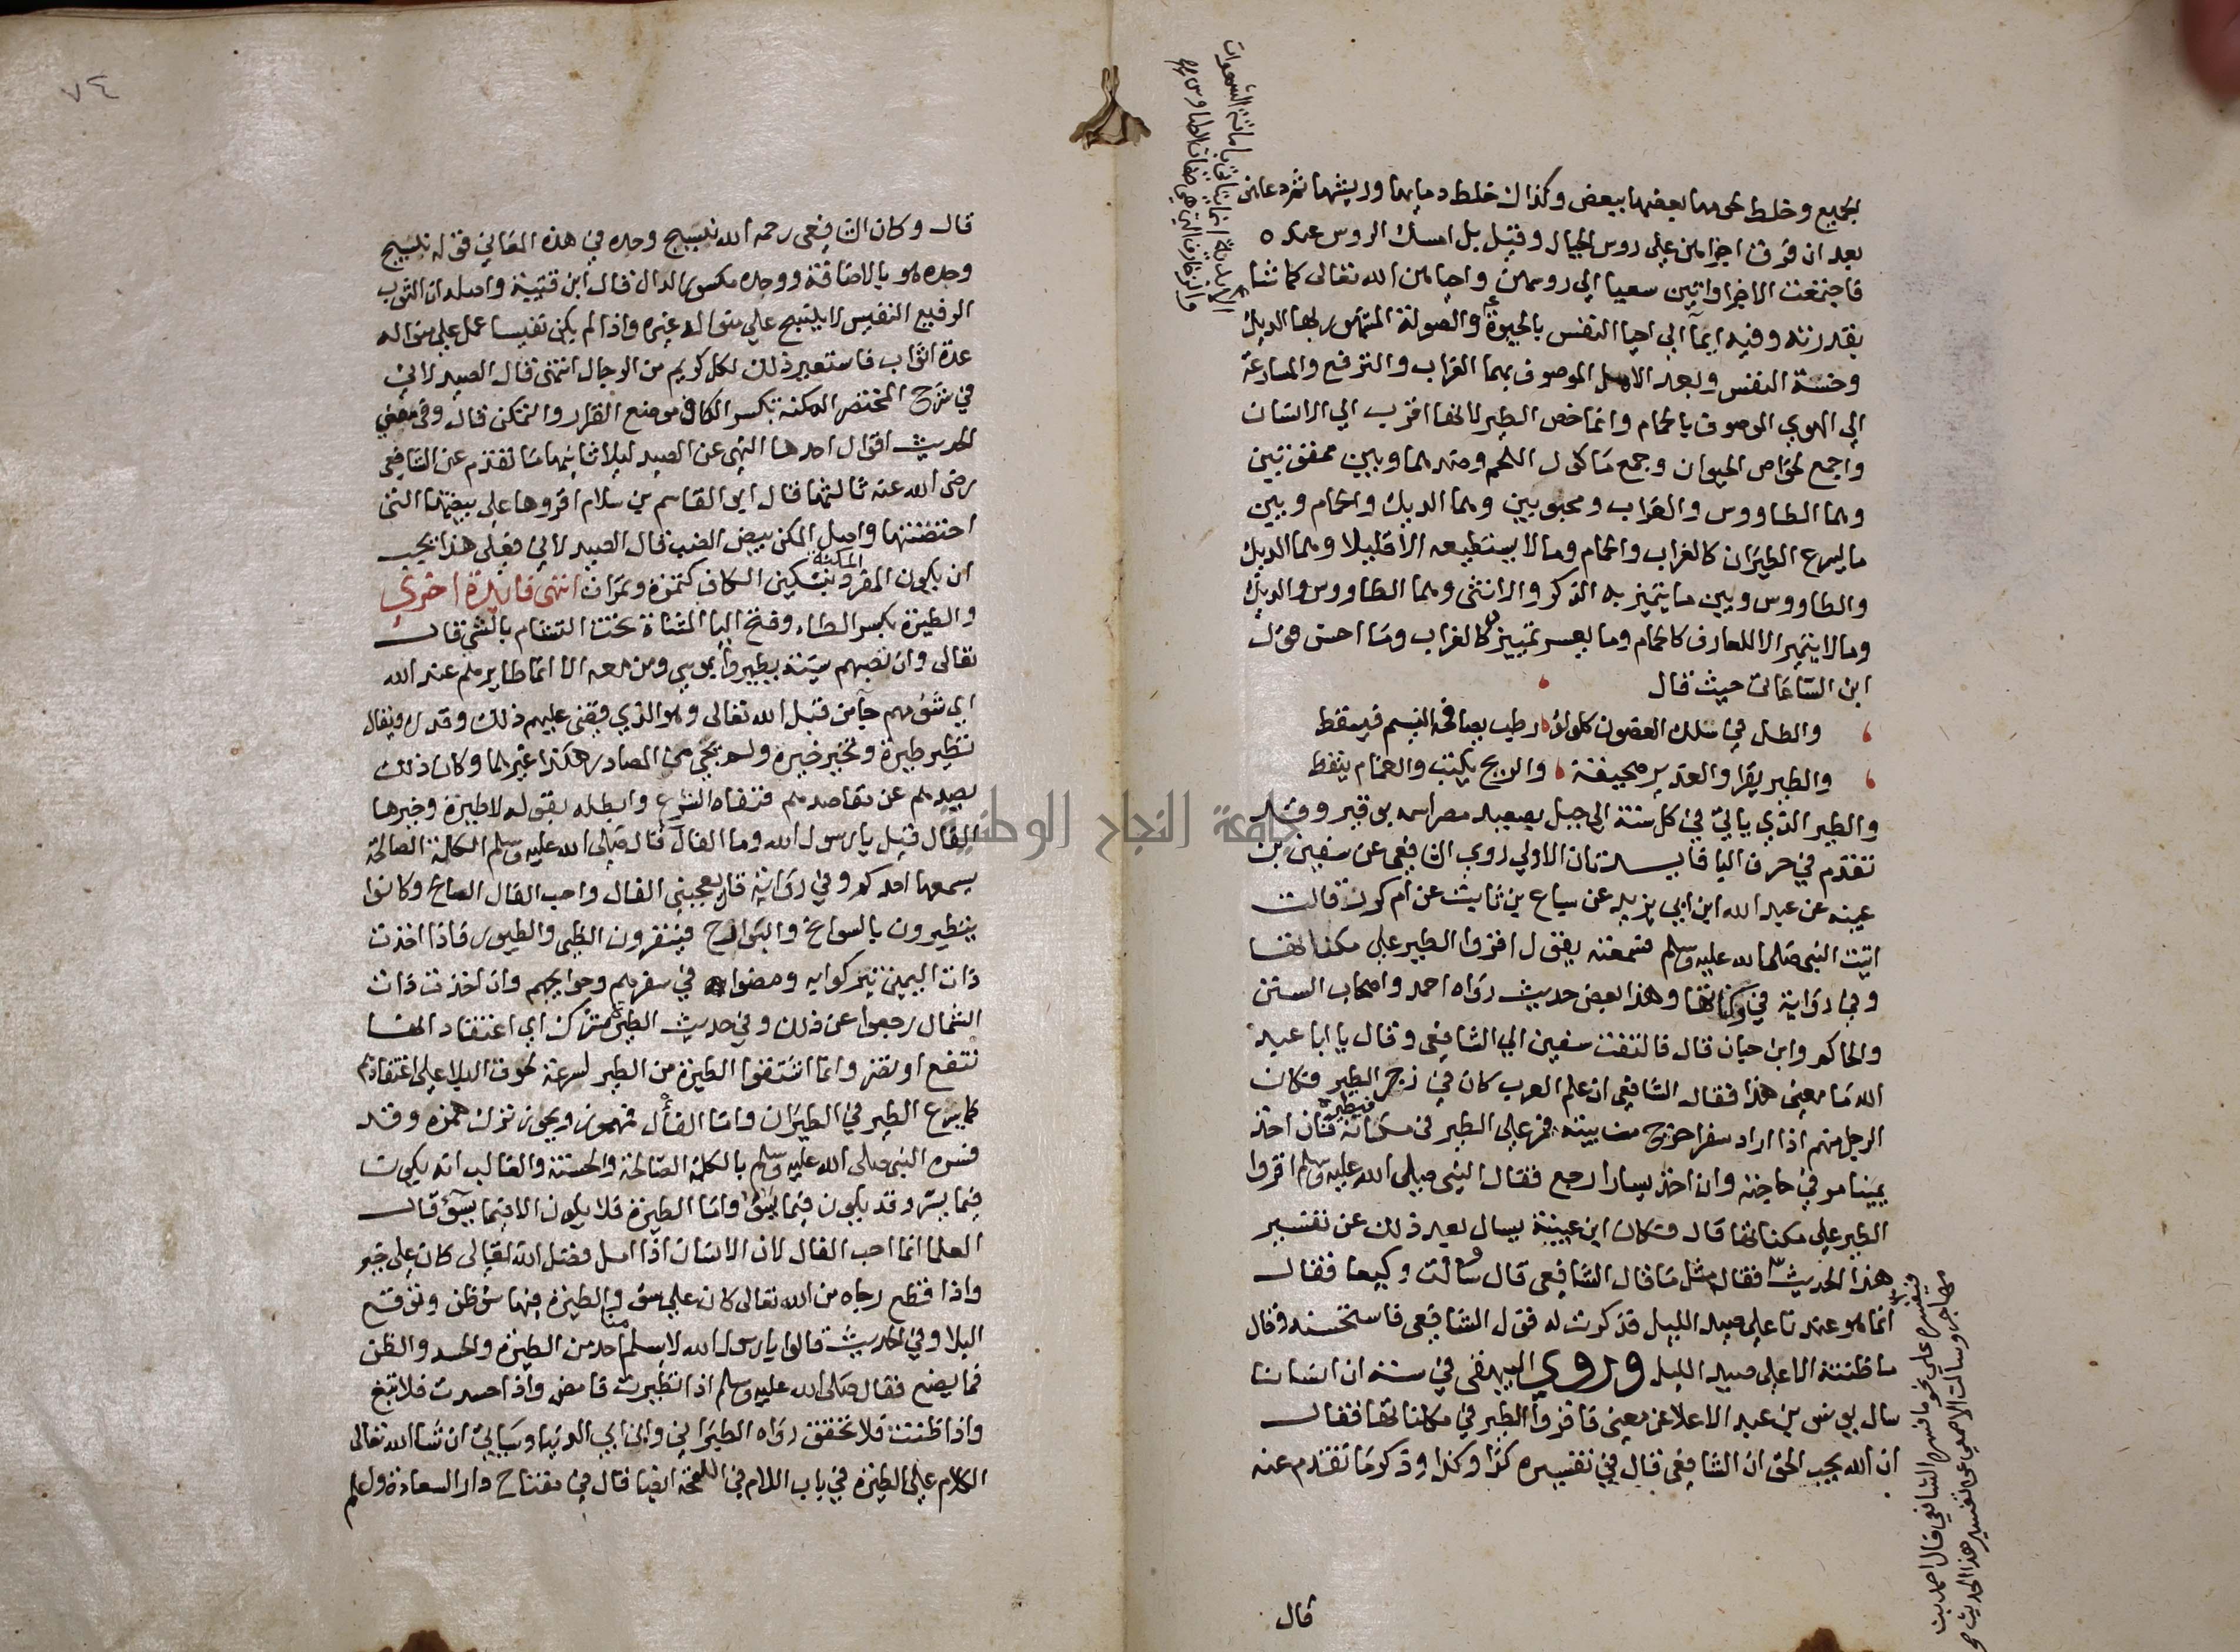 الجميع وخلط لحومها بعضها ببعض وكذلك خلط دمايها وريشها ثم دعاهن
بعد ان فرق اجزاهن على روس الجبال وقيل بل امسك الروس عنده
فاجتمعت الاجزا واتين سعيا الى روسهن واحيا من الله تعالى كما شا
بقدرته وفيه ايمآ الى احيا النفس بالحيوة والصولة المشهور بها الديك
وخسة النفس وبعد الامل الموصوف بهما الغراب والترفع والمسارعة
الى الهوى الموصوف بالحمام وانما خص الطير لانها اقرب الى الانسان
واجمع لخواص الحيوان وجمع ماكول اللحم وضدهما وبين ممقوتين
وهما الطاووس والغراب ومحبوبين وهما الديك والحمام وبين
ما يسرع الطيران كالغراب والحمام وما لا يستطيعه الا قليلا وهما الديك
والطاووس وبين ما يتميز به الذكر والانثى وهما الطاووس والديك
وما لا يتميز الا للعارف كالحمام وما يعسر تمييزه كالغراب وما احسن قول
ابن الساعاتى حيث قال
والطل في سلك الغصون كلولؤ رطيب يصافحه النسيم فيسقط
والطير يقرا والغدير صحيفة والريح يكتب والغمام ينقط
والطير الذي ياتي في كل سنة الى جبل بصعيد مصر اسمه بوقير وقد
تقدم في حرف اليا فايدتان الاولى روى الشافعى عن سفين بن
عيينه عن عبد الله ابن ابى يزيد عن سباع بن ثابت عن ام كرز قالت
اتيت النبى صلى الله عليه وسلم فسمعته يقول اقروا الطير على مكناتها
وفي رواية في وكناتها وهذا بعض حديث رواه احمد واصحاب السنن
والحاكم وابن حبان قال فالتفت سفين الى الشافعى وقال يا ابا عبد
الله ما معنى هذا فقال الشافعى ان علم العرب كان في زجر الطير فكان
الرجل منهم اذا اراد سفرا خرج من بيته فمر على الطير في مكانه فيطيره فان اخذ
يمينا مر في حاجته وان اخذ يسارا رجع فقال النبى صلى الله عليه وسلم اقروا
الطير على مكناتها قال فكان ابن عيينة يسال بعد ذلك عن تفسير
هذا الحديث فقال مثل ما قال الشافعى قال وسالت وكيعا فقال
انما هو عندنا على صيد الليل فذكرت له قول الشافعى فاستحسنه وقال
ما ظننته الا على صيد الليل وروي البيهقى في سننه ان انسانا
سال يونس بن عبد الاعلا عن معنى قاقروا الطير في مكناتها فقال
ان الله يحب الحق ان الشافعى قال في تفسيره كذا وكذا وذكر ما تقدم عنه
قال
فيفسره على نحو ما فسره الشافعى قال احمد بن
مهاجر وسالت الاصمعي عن تفسير هذا الحديث
٧٤
قال وكان الشافعى رحمه الله نسيج وحده في هذه المعاني قوله نسيج
وحده هو بالاضافة ووحده مكسور الدال قال ابن قتيبة واصله ان الثوب
الرفيع النفيس لا ينسج على منواله غيره واذا لم يكن نفيسا عمل على منواله
عدة اثواب فاستعير ذلك لكل كريم من الرجال انتهى قال الصيدلاني
في شرح المختصر المكنة بكسر الكاف موضع القرار والتمكن قال وفي معنى
الحديث اقوال احدها النهى عن الصيد ليلا ثانيها ما تقدم عن الشافعى
رضى الله عنه ثالثها قال ابو القاسم بن سلام اقروها على بيضها التى
احتضنتها واصل المكن بيض الضب قال الصيدلاني فعلى هذا يجب
ان يكون المفرد المكنة بتسكين الكاف كتمرة وتمرات انتهى فايدة اخري
والطيرة بكسر الطاء وفتح اليا المثناة تحت التشام بالشي قال
تعالى وان تصبهم سيئة يطيروا بموسى ومن معه الا انما طايرهم عند الله
اى شؤمهم جآ من قبل الله تعالى وهو الذي قضى عليهم ذلك وقدره ويقال
تطير طيرة وتخير خيرة ولم يجي من المصادر هكذا غيرهما وكان ذلك
يصدهم عن مقاصدهم فنفاه الشرع وابطله بقوله لا طيرة وخيرها
الفال قيل يا رسول الله وما الفال قال صلى الله عليه وسلم الكلمة الصالحة
يسمعها احدكم وفي رواية قال يعجبنى الفال واحب الفال الصالح وكانوا
يتطيرون بالسوانح والبوارح فينفرون الظبى والطيور فاذا اخذت
ذات اليمين تبركوا به ومضوا في سفرهم وحوايجهم وان اخذت ذات
الشمال رجعوا عن ذلك وفي حديث الطيرة شرك اى اعتقاد انها
تنفع او تضر وانما اشتقوا الطيرة من الطير لسرعة لحوق البلا على اعتقادهم
كما يسرع الطير في الطيران واما الفأل فمهموز ويجوز ترك همزه وقد
فسره النبى صلى الله عليه وسلم بالكلمة الصالحة والحسنة والغالب انه يكون
فيما يسر وقد يكون فيما يسؤ واما الطيرة فلا يكون الا فيما يسؤ قال
العلما انما احب الفال لان الانسان اذا امل فضل الله تعالى كان على خير
واذا قطع رجاه من الله تعالى كان على سؤ والطيرة فيها سؤ ظن وتوقع
البلا وفي الحديث قالوا يا رسول الله لا يسلم منا احد من الطيرة والحسد والظن
فما يصنع فقال صلى الله عليه وسلم اذا تطيرت فامض واذا حسدت فلا تبغ
واذا ظننت فلا تحقق رواه الطبراني وابن ابى الدنيا وسياتي ان شا الله تعالى
الكلام على الطيرة في باب اللام في اللقحة ايضا قال في مفتاح دار السعادة واعلم
جامعة النجاح الوطنية